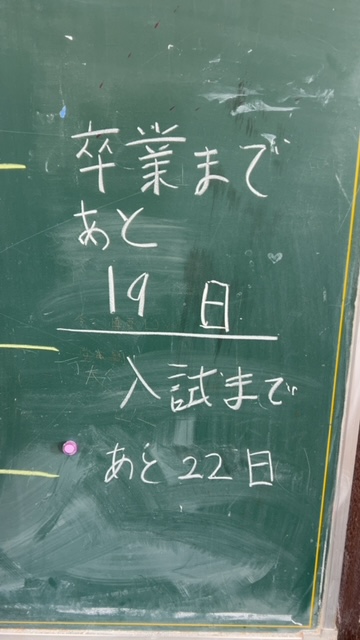 卒業まで
あと
19 日
入試まで
あと22日